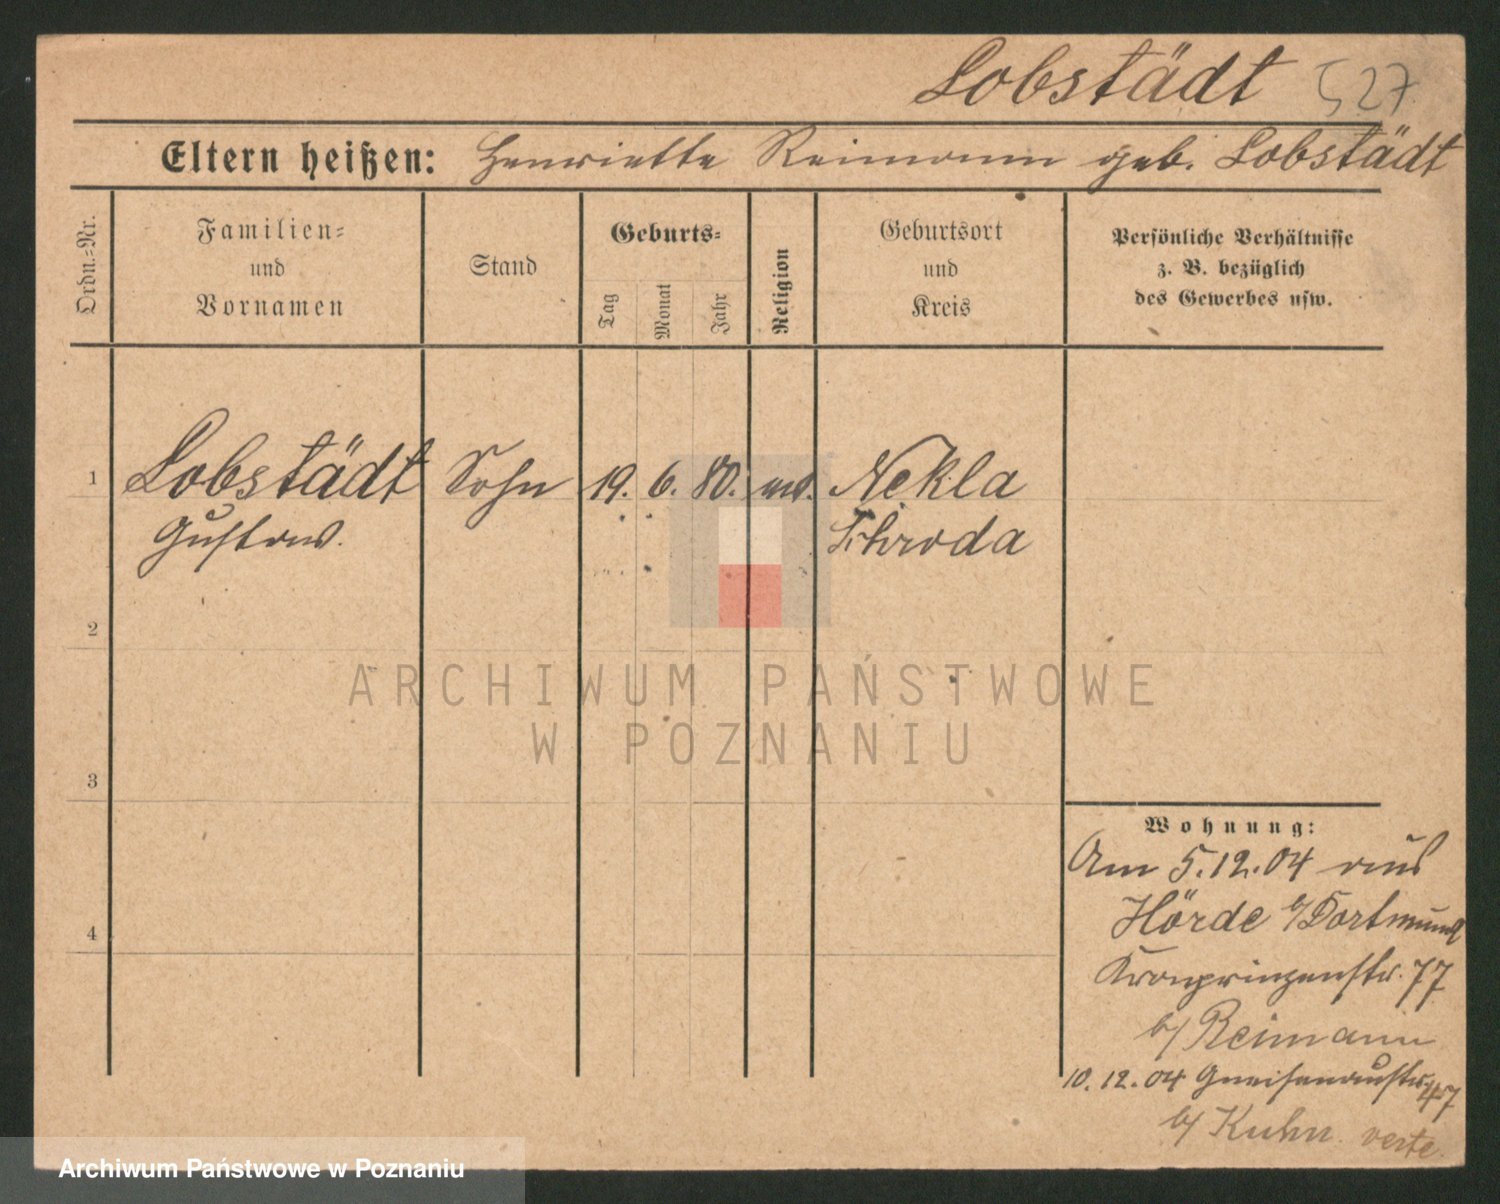 Lobstädt 527
Eltern heißen: Henriette Reimann geb. Lobstädt
Ordn.-Nr.
Familien-
und
Vornamen
Stand
Geburts-
Tag
Monat
Jahr
Religion
Geburtsort
und
Kreis
Persönliche Verhältnisse
z. B. bezüglich
des Gewerbes usw.
1 Lobstädt Sohn 19. 6. 80. Nekla
Gustav. Schroda
2
3
4
ARCHIWUM PAŃSTWOWE
W POZNANIU
Wohnung:
Am 5.12.04 aus
Hörde b/Dortmund
Kronprinzenstr. 77
b/ Reimann
10.12.04 Gneisenaustr. 47
b/ Kuhn. verte.
Archiwum Państwowe w Poznaniu